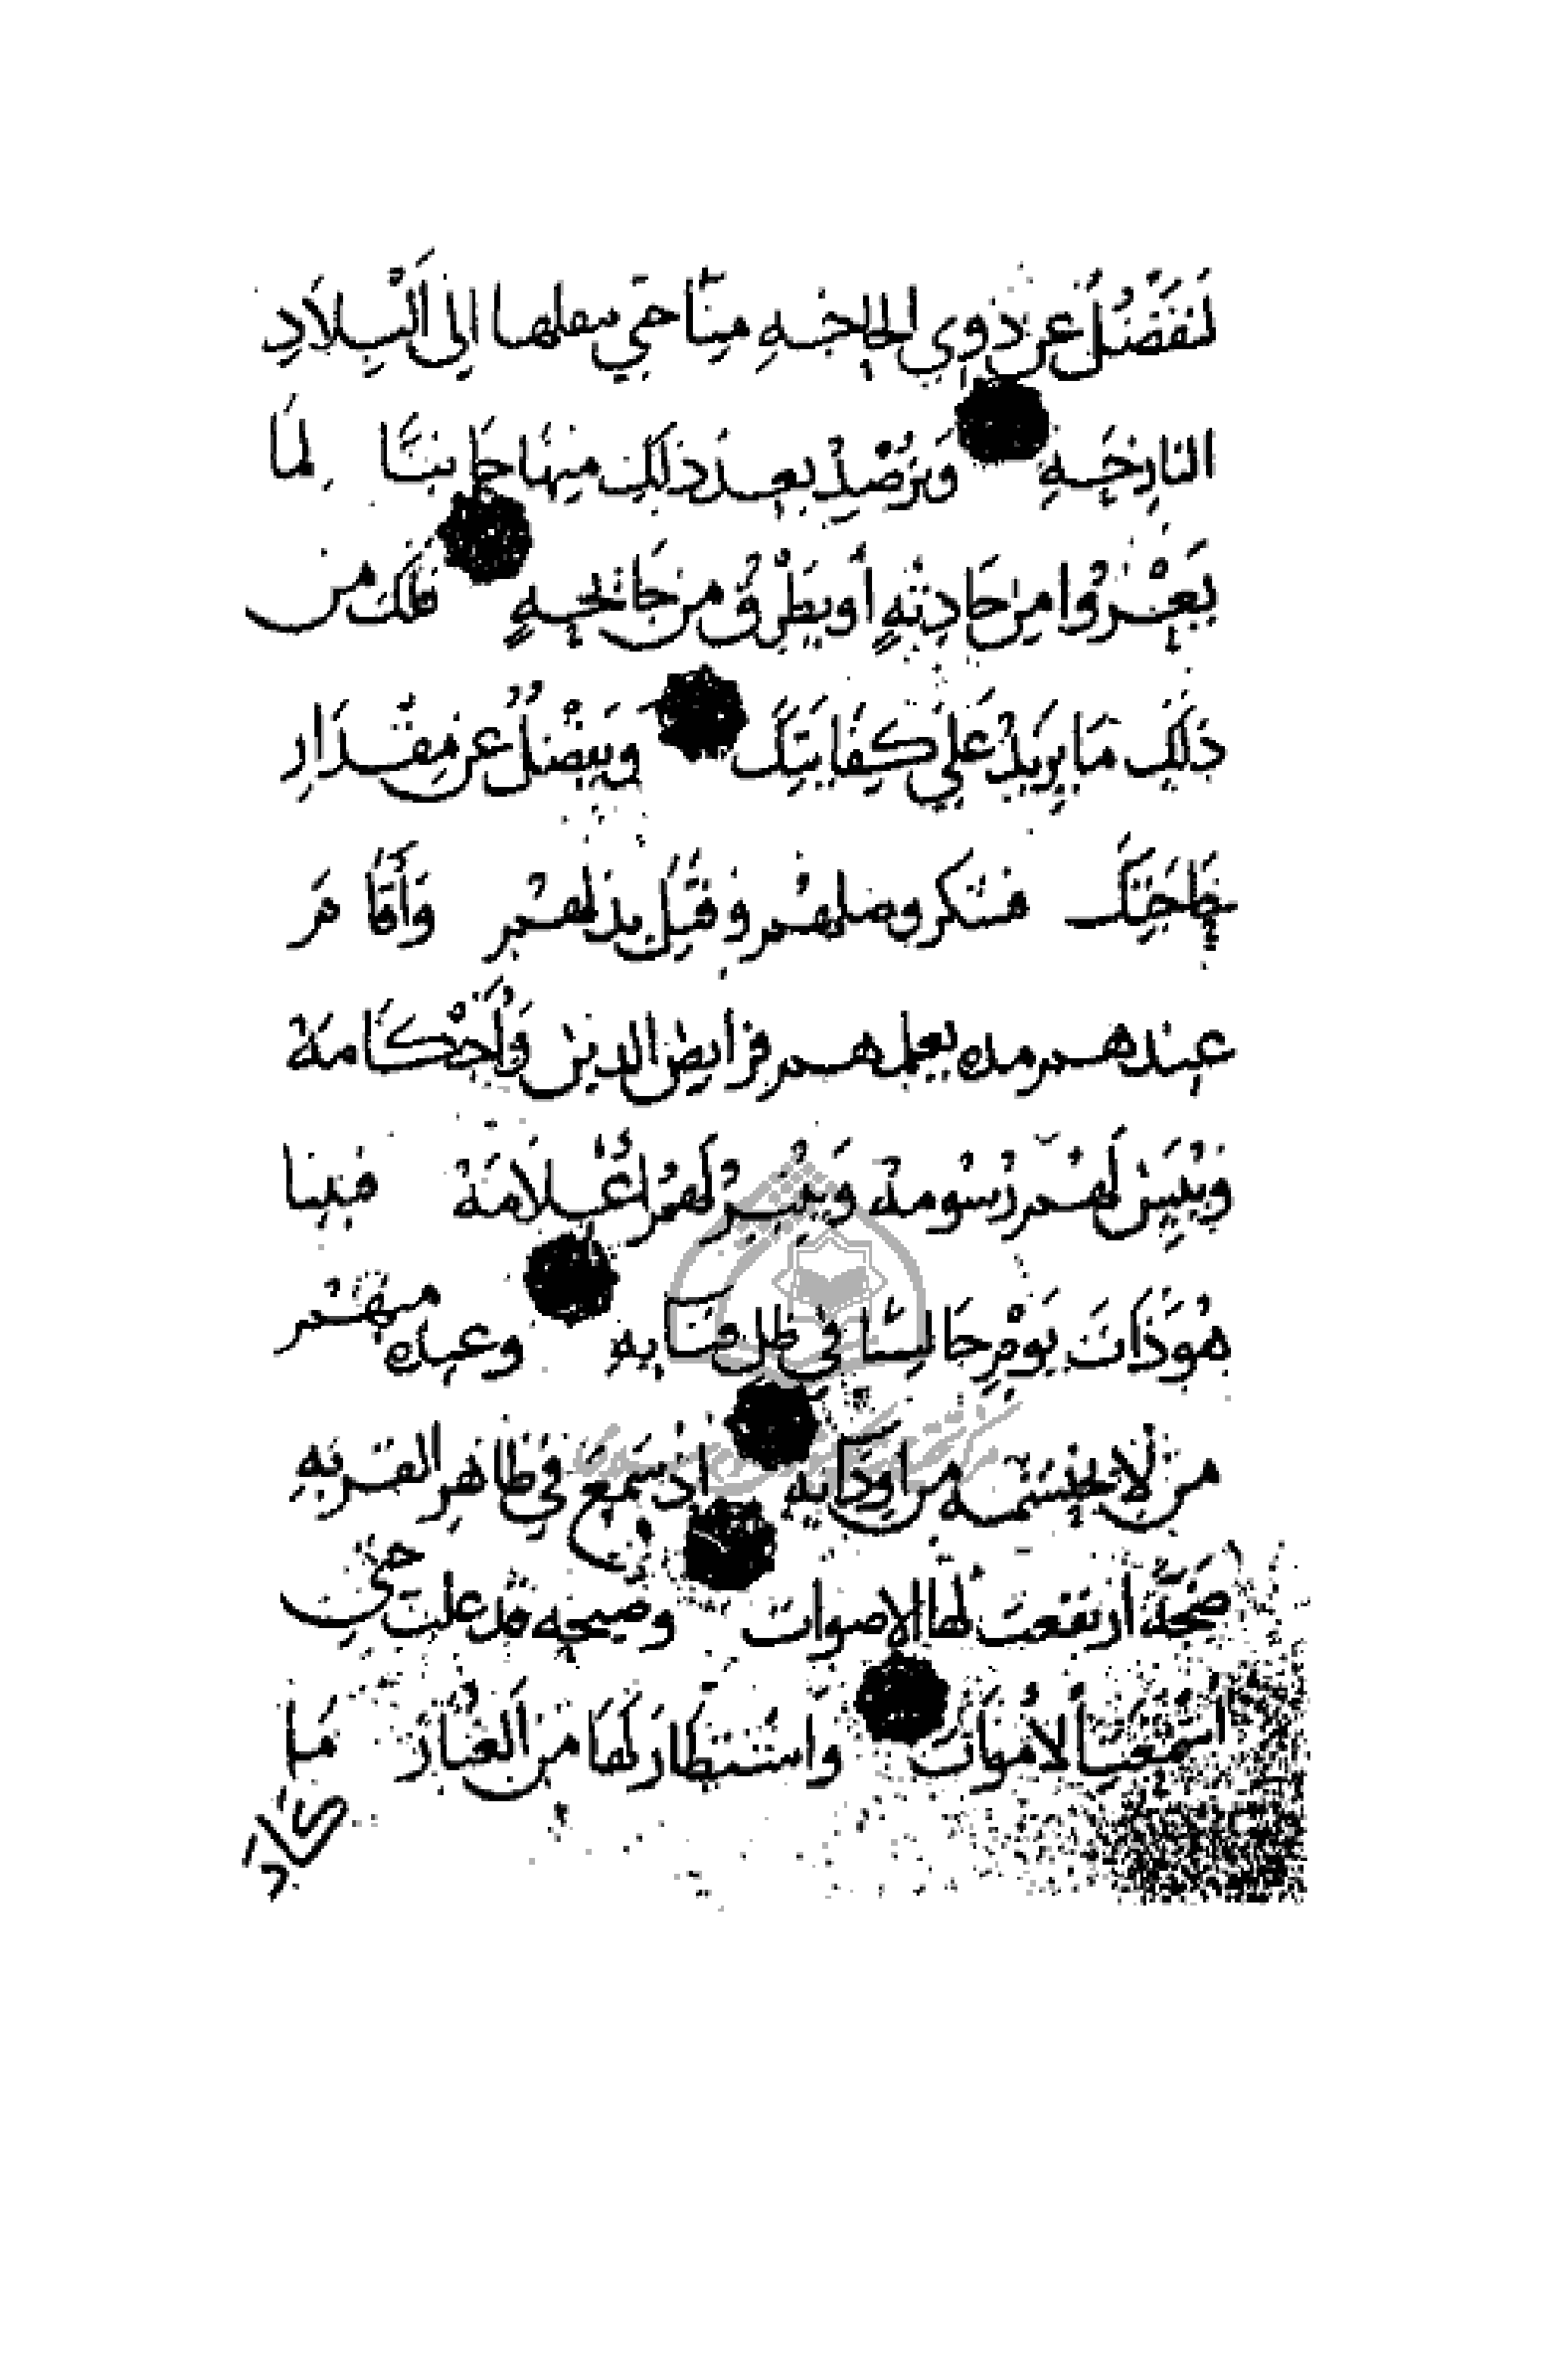 لتفضل عن ذوي الحاجه منا حتي ننقلها الى البلاد
النازحه وَنرصد بعد ذلك منها جانبًا لما
يعروا من حادثهٍ أو يطرق من جائحهٍ فلك من
ذلك ما يزيد على كفايتك ويفضل عن مقدار
حاجتك فشكر وصلهم وقبل بذلهم وأقام
عندهم مده يعلمهم فرايض الدين وأحكامه
ويبين لهم رسومه وينير لهم أعلامه فبينا
هو ذات يوم جالسًا في ظل فنايه وعنده منهم
من لا يحتشمه من اودّايه اذ سمع في ظاهر القريه
ضجّة ارتفعت لها الاصوات وصيحه قد علت حتى
اسمعت الاموات واستطار لها من الغبار ما
كاد